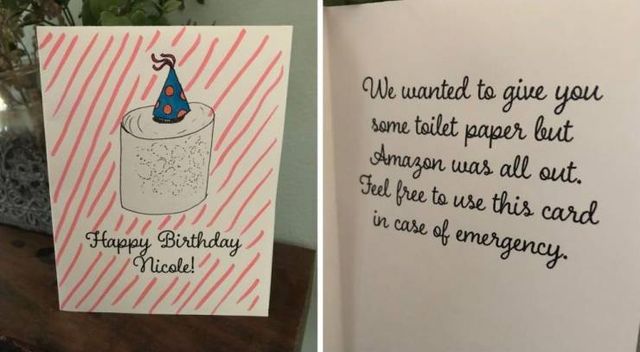 Happy Birthday
Nicole!
We wanted to give you
some toilet paper but
Amazon was all out.
Feel free to use this card
in case of emergency.